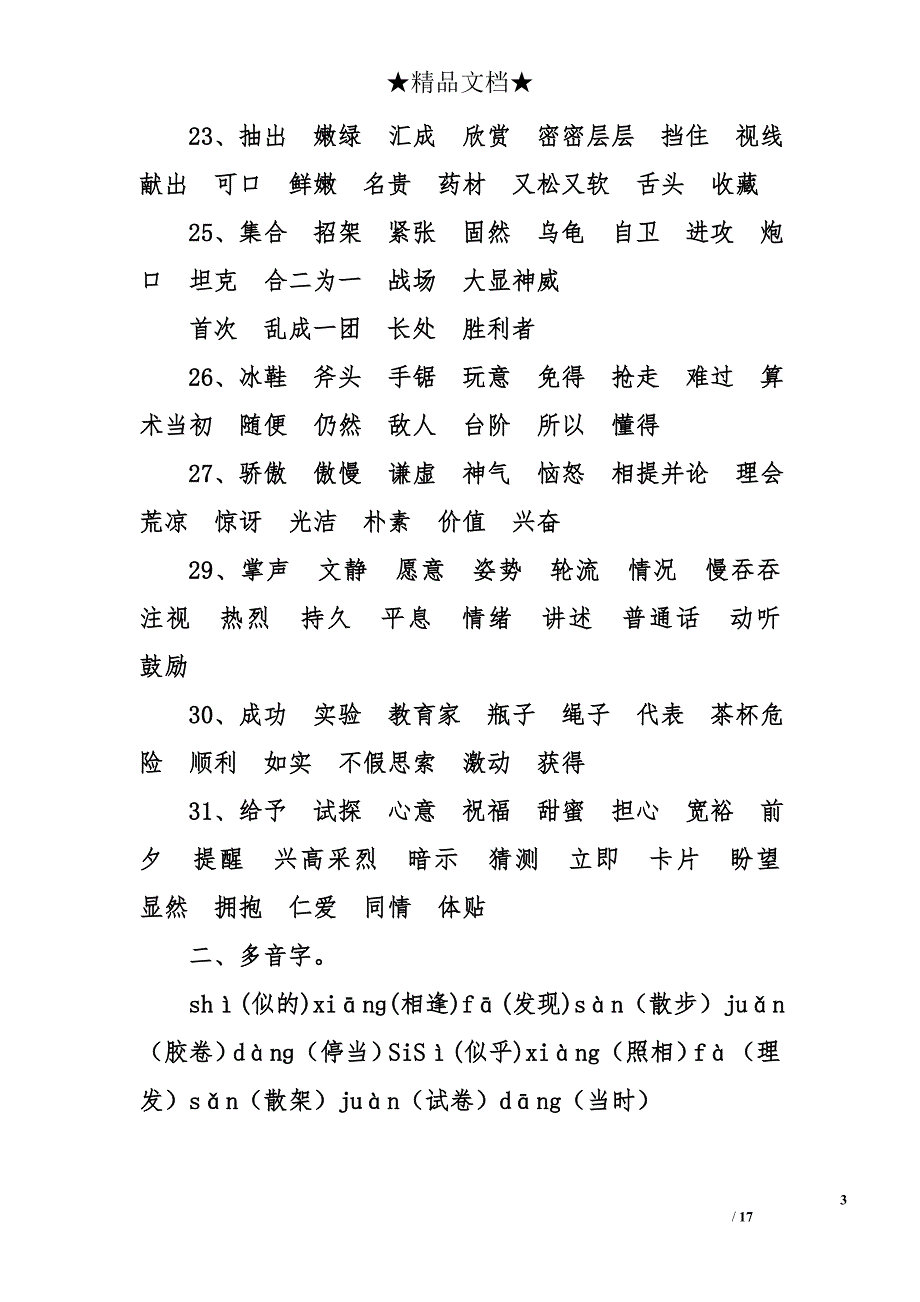 ★精品文档★
23、抽出 嫩绿 汇成 欣赏 密密层层 挡住 视线
献出 可口 鲜嫩 名贵 药材 又松又软 舌头 收藏
25、集合 招架 紧张 固然 乌龟 自卫 进攻 炮
口 坦克 合二为一 战场 大显神威
首次 乱成一团 长处 胜利者
26、冰鞋 斧头 手锯 玩意 免得 抢走 难过 算
术当初 随便 仍然 敌人 台阶 所以 懂得
27、骄傲 傲慢 谦虚 神气 恼怒 相提并论 理会
荒凉 惊讶 光洁 朴素 价值 兴奋
29、掌声 文静 愿意 姿势 轮流 情况 慢吞吞
注视 热烈 持久 平息 情绪 讲述 普通话 动听
鼓励
30、成功 实验 教育家 瓶子 绳子 代表 茶杯危
险 顺利 如实 不假思索 激动 获得
31、给予 试探 心意 祝福 甜蜜 担心 宽裕 前
夕 提醒 兴高采烈 暗示 猜测 立即 卡片 盼望
显然 拥抱 仁爱 同情 体贴
二、多音字。
shì(似的)xiāng(相逢)fā(发现)sàn（散步）juǎn
（胶卷）dàng（停当）SiSì(似乎)xiàng（照相）fà（理
发）sǎn（散架）juàn（试卷）dāng（当时）
3
/ 17